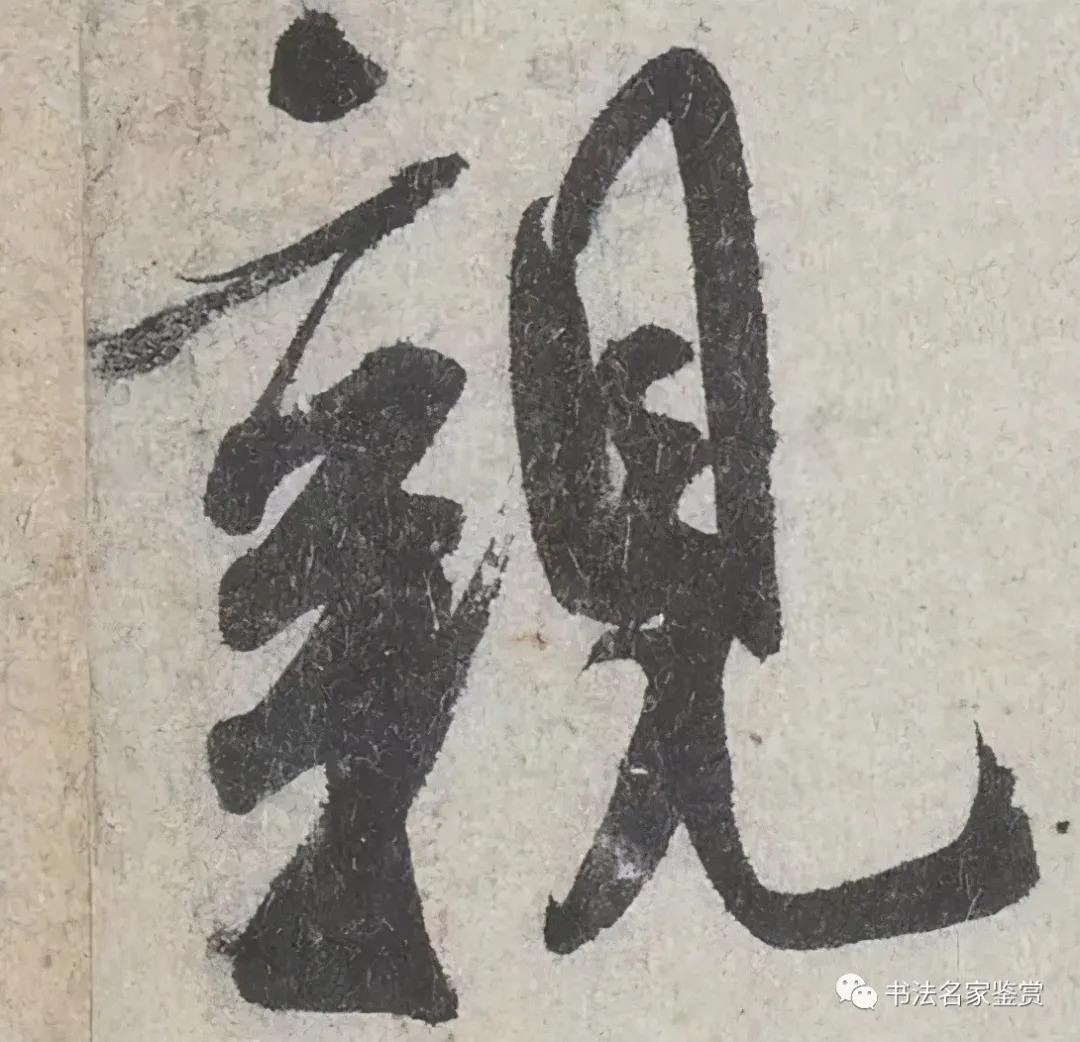 親
书法名家鉴赏